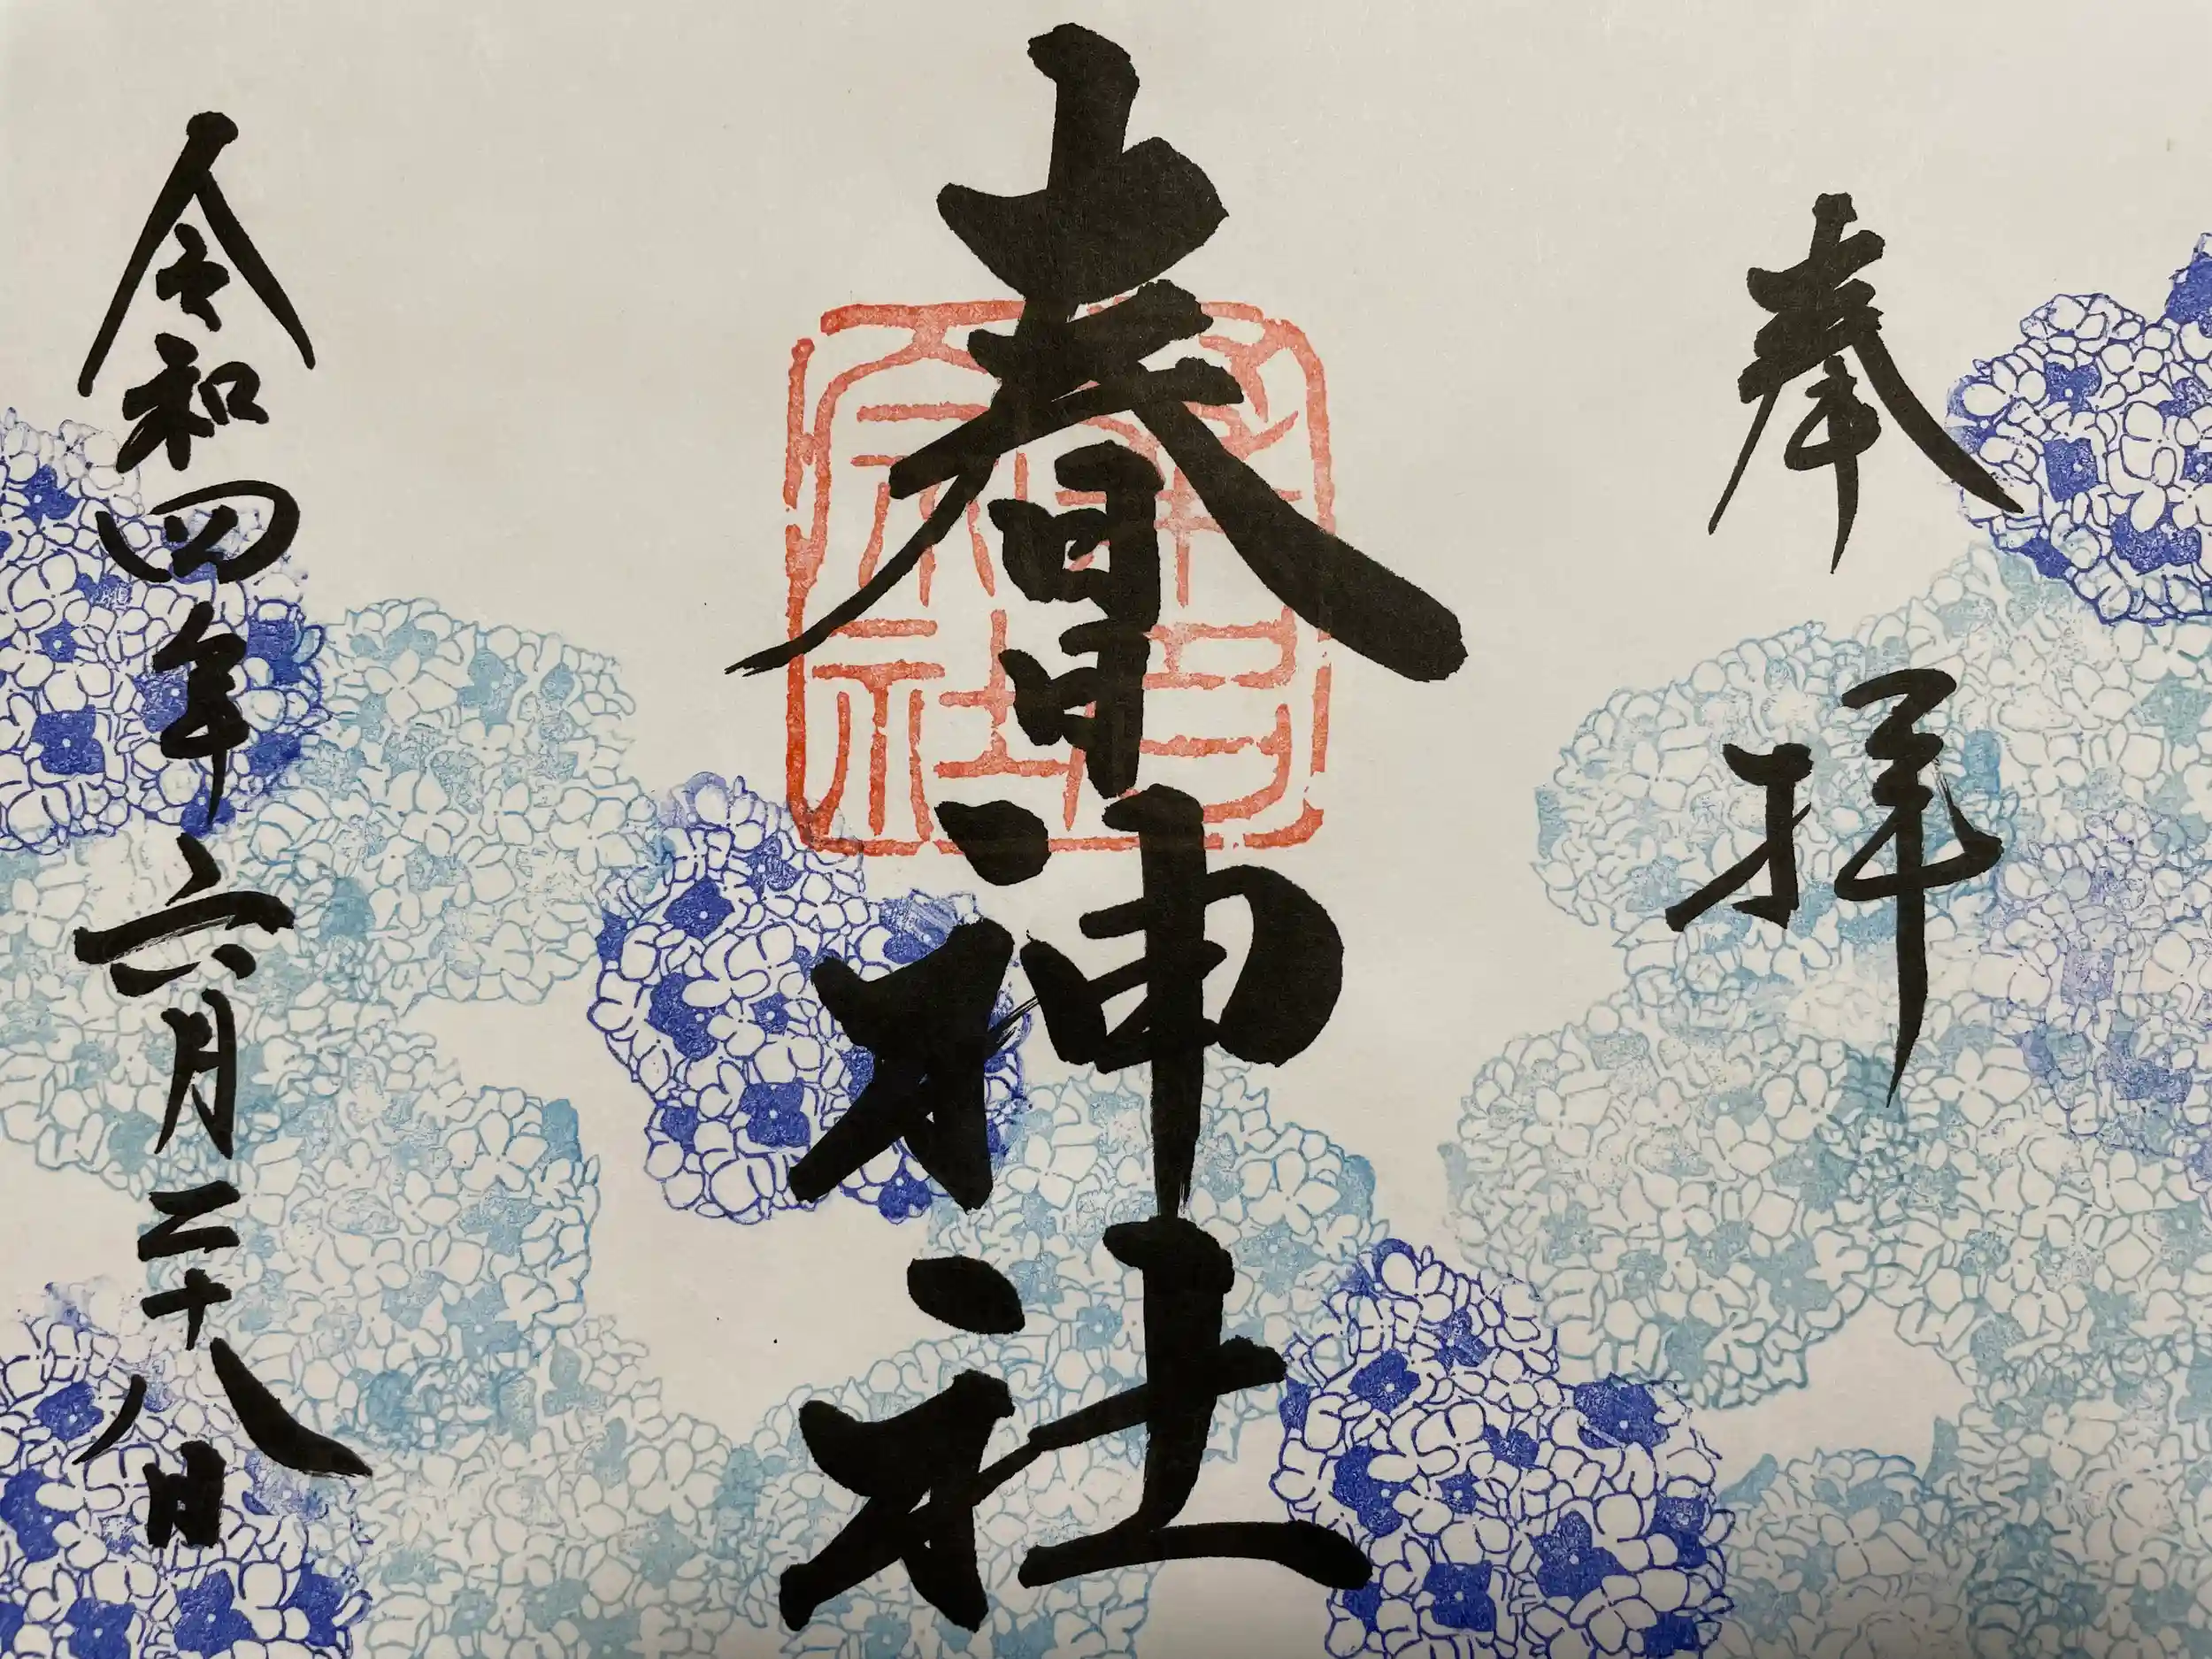 奉拝
春日神社
令和四年六月二十八日